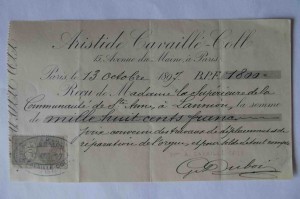 Aristide Cavaillé-Coll
15 Avenue du Maine, à Paris
Paris, le 13 Octobre 1897 B.P.F. 1800
Reçu de Madame la Supérieure de la
Communauté de Ste Anne, à Lannion, la somme
de mille huit cents francs
pour des travaux de déplacement et de
réparation de l'orgue, et pour
G Dubois